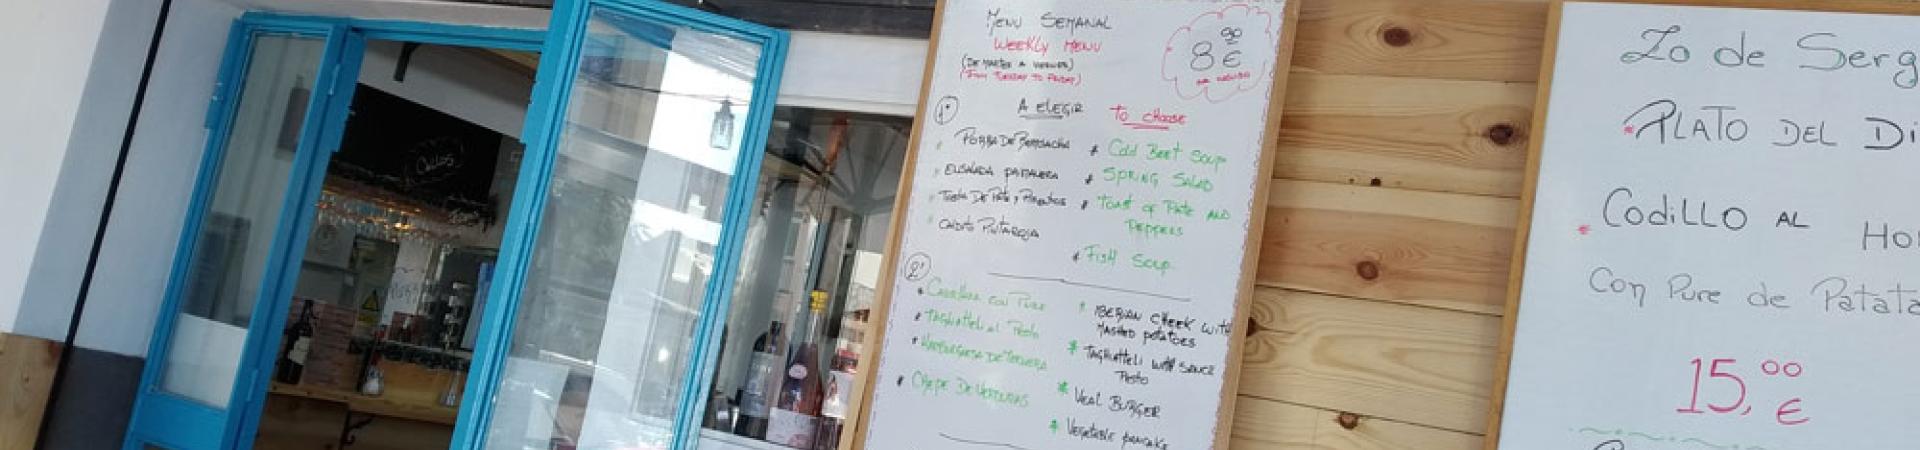 MENU SEMANAL
WEEKLY MENU
(DE MARTES A VIERNES)
(FROM TUESDAY TO FRIDAY)
8 90 €
1º
A ELEGIR
To choose
* Cold Beet Soup
ENSALADA
* SPRING SALAD
* Toast of Pate AND
Peppers
* Fish Soup
2º
* CARRILLADA CON PURE
* IBERIAN CHEEK WITH
MASHED potatoes
* TAGLIATTELI AL Pesto
* TAGLIATTELI WITH SAUCE
Pesto
* HAMBURGUESA DE TERNERA
* VEAL BURGER
* CREPE DE VERDURAS
* VEGETABLE PANCAKE
Lo de Serg
* PLATO DEL Di
* CODILLO AL Ho
Con Pure de Patata
15,00 €